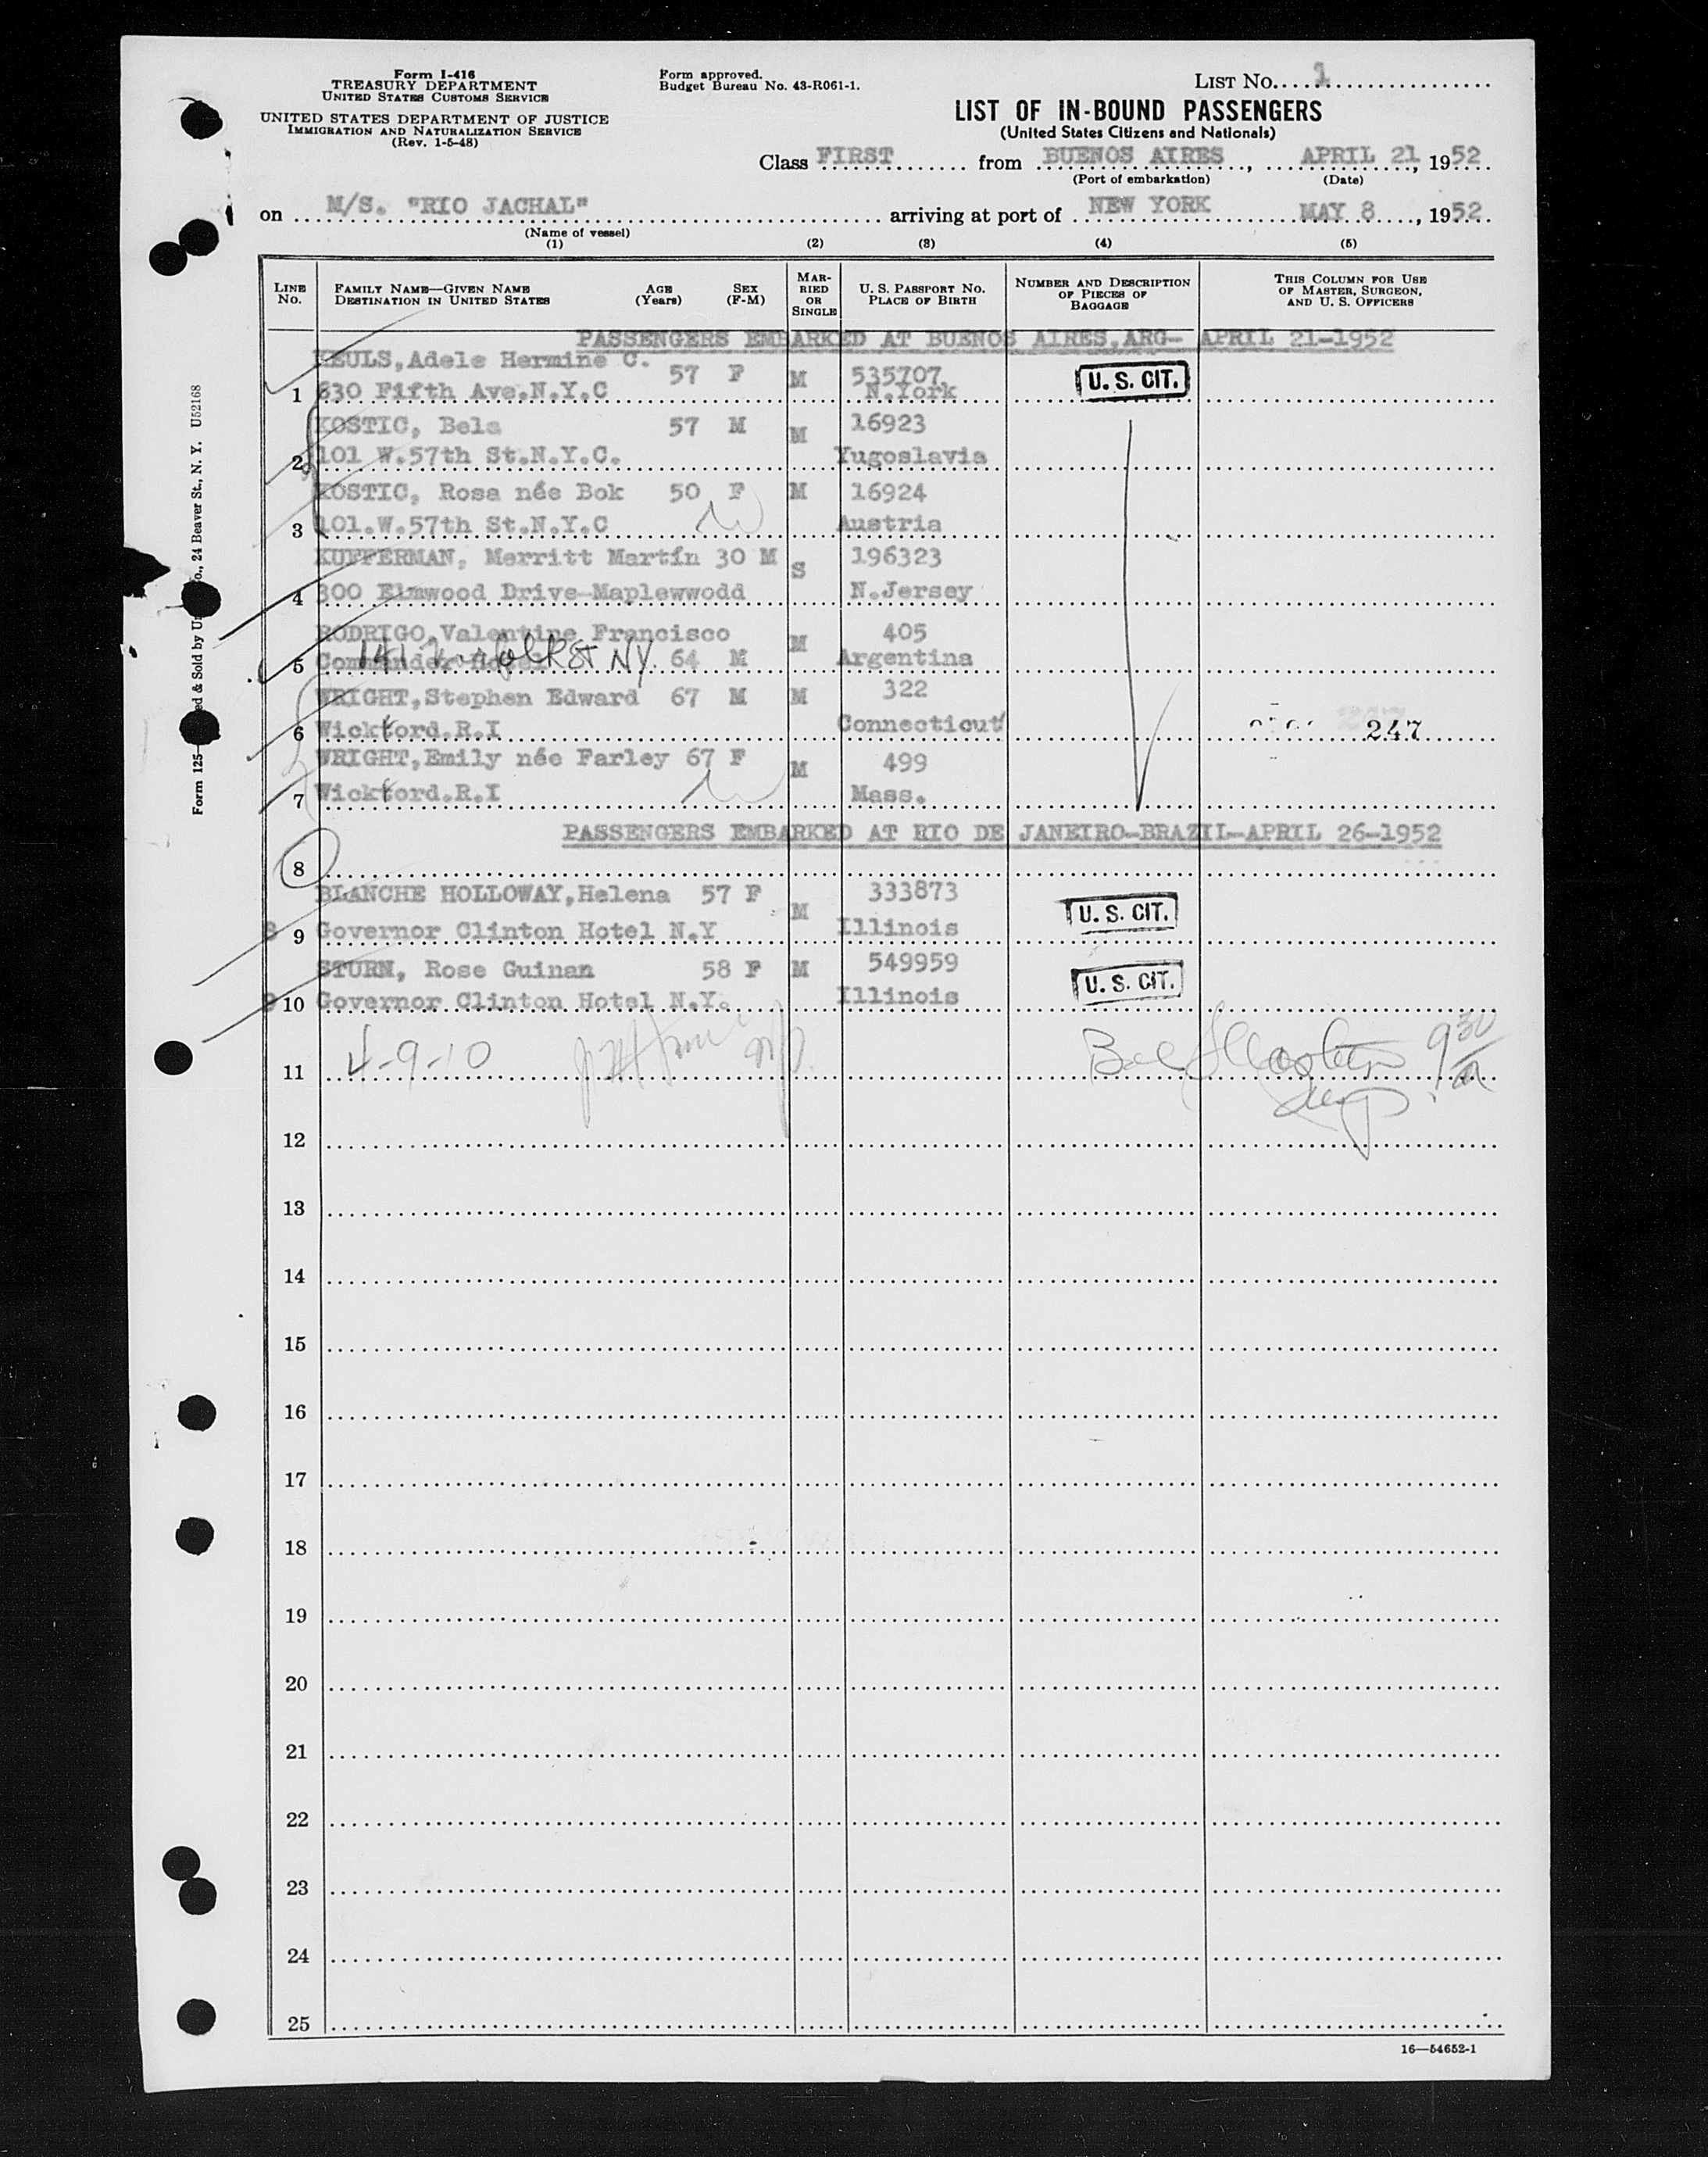 Form I-416
TREASURY DEPARTMENT
UNITED STATES CUSTOMS SERVICE
UNITED STATES DEPARTMENT OF JUSTICE
IMMIGRATION AND NATURALIZATION SERVICE
(Rev. 1-5-48)
Form approved.
Budget Bureau No. 43-R061-1.
LIST NO. 1
LIST OF IN-BOUND PASSENGERS
(United States Citizens and Nationals)
Class FIRST from BUENOS AIRES, APRIL 21, 1952
(Port of embarkation) (Date)
on M/S. "RIO JACHAL" arriving at port of NEW YORK MAY 8, 1952
(Name of vessel)
(1) (2) (3) (4) (5)
LINE NO. FAMILY NAME—GIVEN NAME DESTINATION IN UNITED STATES AGE (Years) SEX (F-M) MARRIED OR SINGLE U. S. PASSPORT NO. PLACE OF BIRTH NUMBER AND DESCRIPTION OF PIECES OF BAGGAGE THIS COLUMN FOR USE OF MASTER, SURGEON, AND U. S. OFFICERS
PASSENGERS EMBARKED AT BUENOS AIRES, ARG- APRIL 21-1952
KEULS, Adele Hermine C. 57 F M 535707
1 630 Fifth Ave. N.Y.C N.York U. S. CIT.
KOSTIC, Bela 57 M M 16923
2 101 W.57th St.N.Y.C. Yugoslavia
KOSTIC, Rosa née Bok 50 F M 16924
3 101.W.57th St.N.Y.C Austria
KUPFERMAN, Merritt Martín 30 M S 196323
4 300 Elmwood Drive-Maplewwodd N.Jersey
RODRIGO, Valentine Francisco M 405
5 Commander Hotel 141 St NY. 64 M Argentina
WRIGHT, Stephen Edward 67 M M 322
6 Wickford.R.I Connecticut 247
WRIGHT, Emily née Farley 67 F M 499
7 Wickford.R.I Mass.
PASSENGERS EMBARKED AT RIO DE JANEIRO-BRAZIL-APRIL 26-1952
8
BLANCHE HOLLOWAY, Helena 57 F M 333873
8 9 Governor Clinton Hotel N.Y Illinois U. S. CIT.
STURN, Rose Guinan 58 F M 549959
9 10 Governor Clinton Hotel N.Y. Illinois U. S. CIT.
11 4-9-10 9 30
12
13
14
15
16
17
18
19
20
21
22
23
24
25
16—54652-1
Form 125— ed & Sold by U o., 24 Beaver St., N. Y. U52168